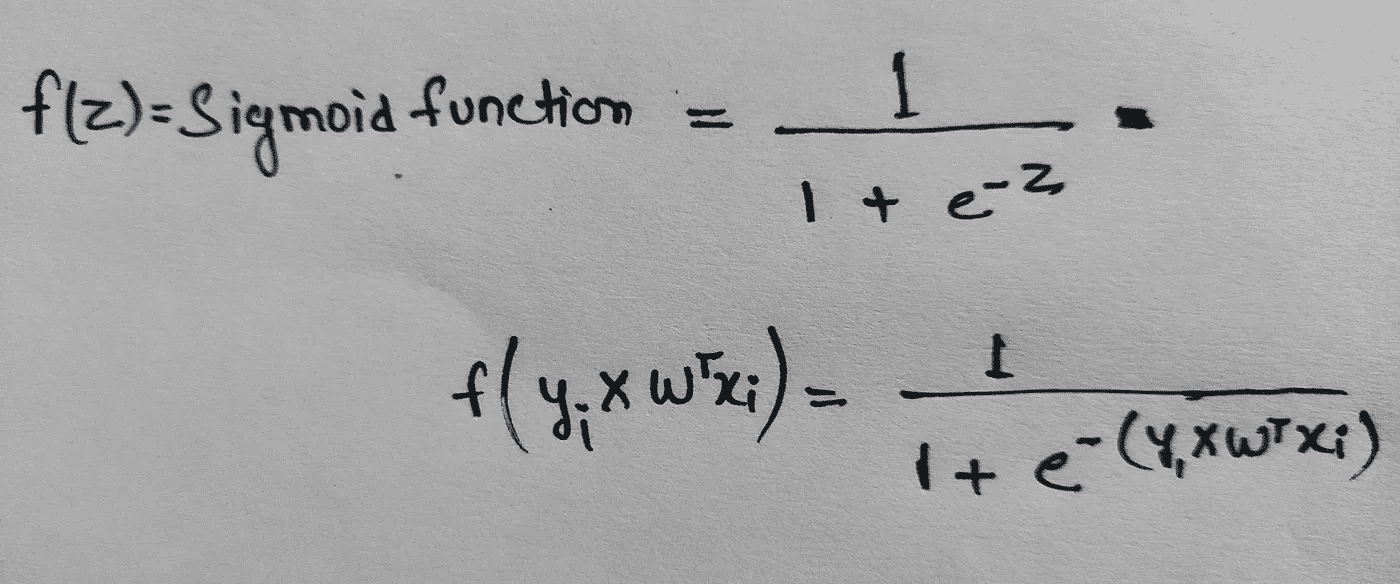 f(z)=Sigmoid function = 1 / 1 + e^-z
f(y_i × w^T x_i) = 1 / 1 + e^-(y_i × w^T x_i)